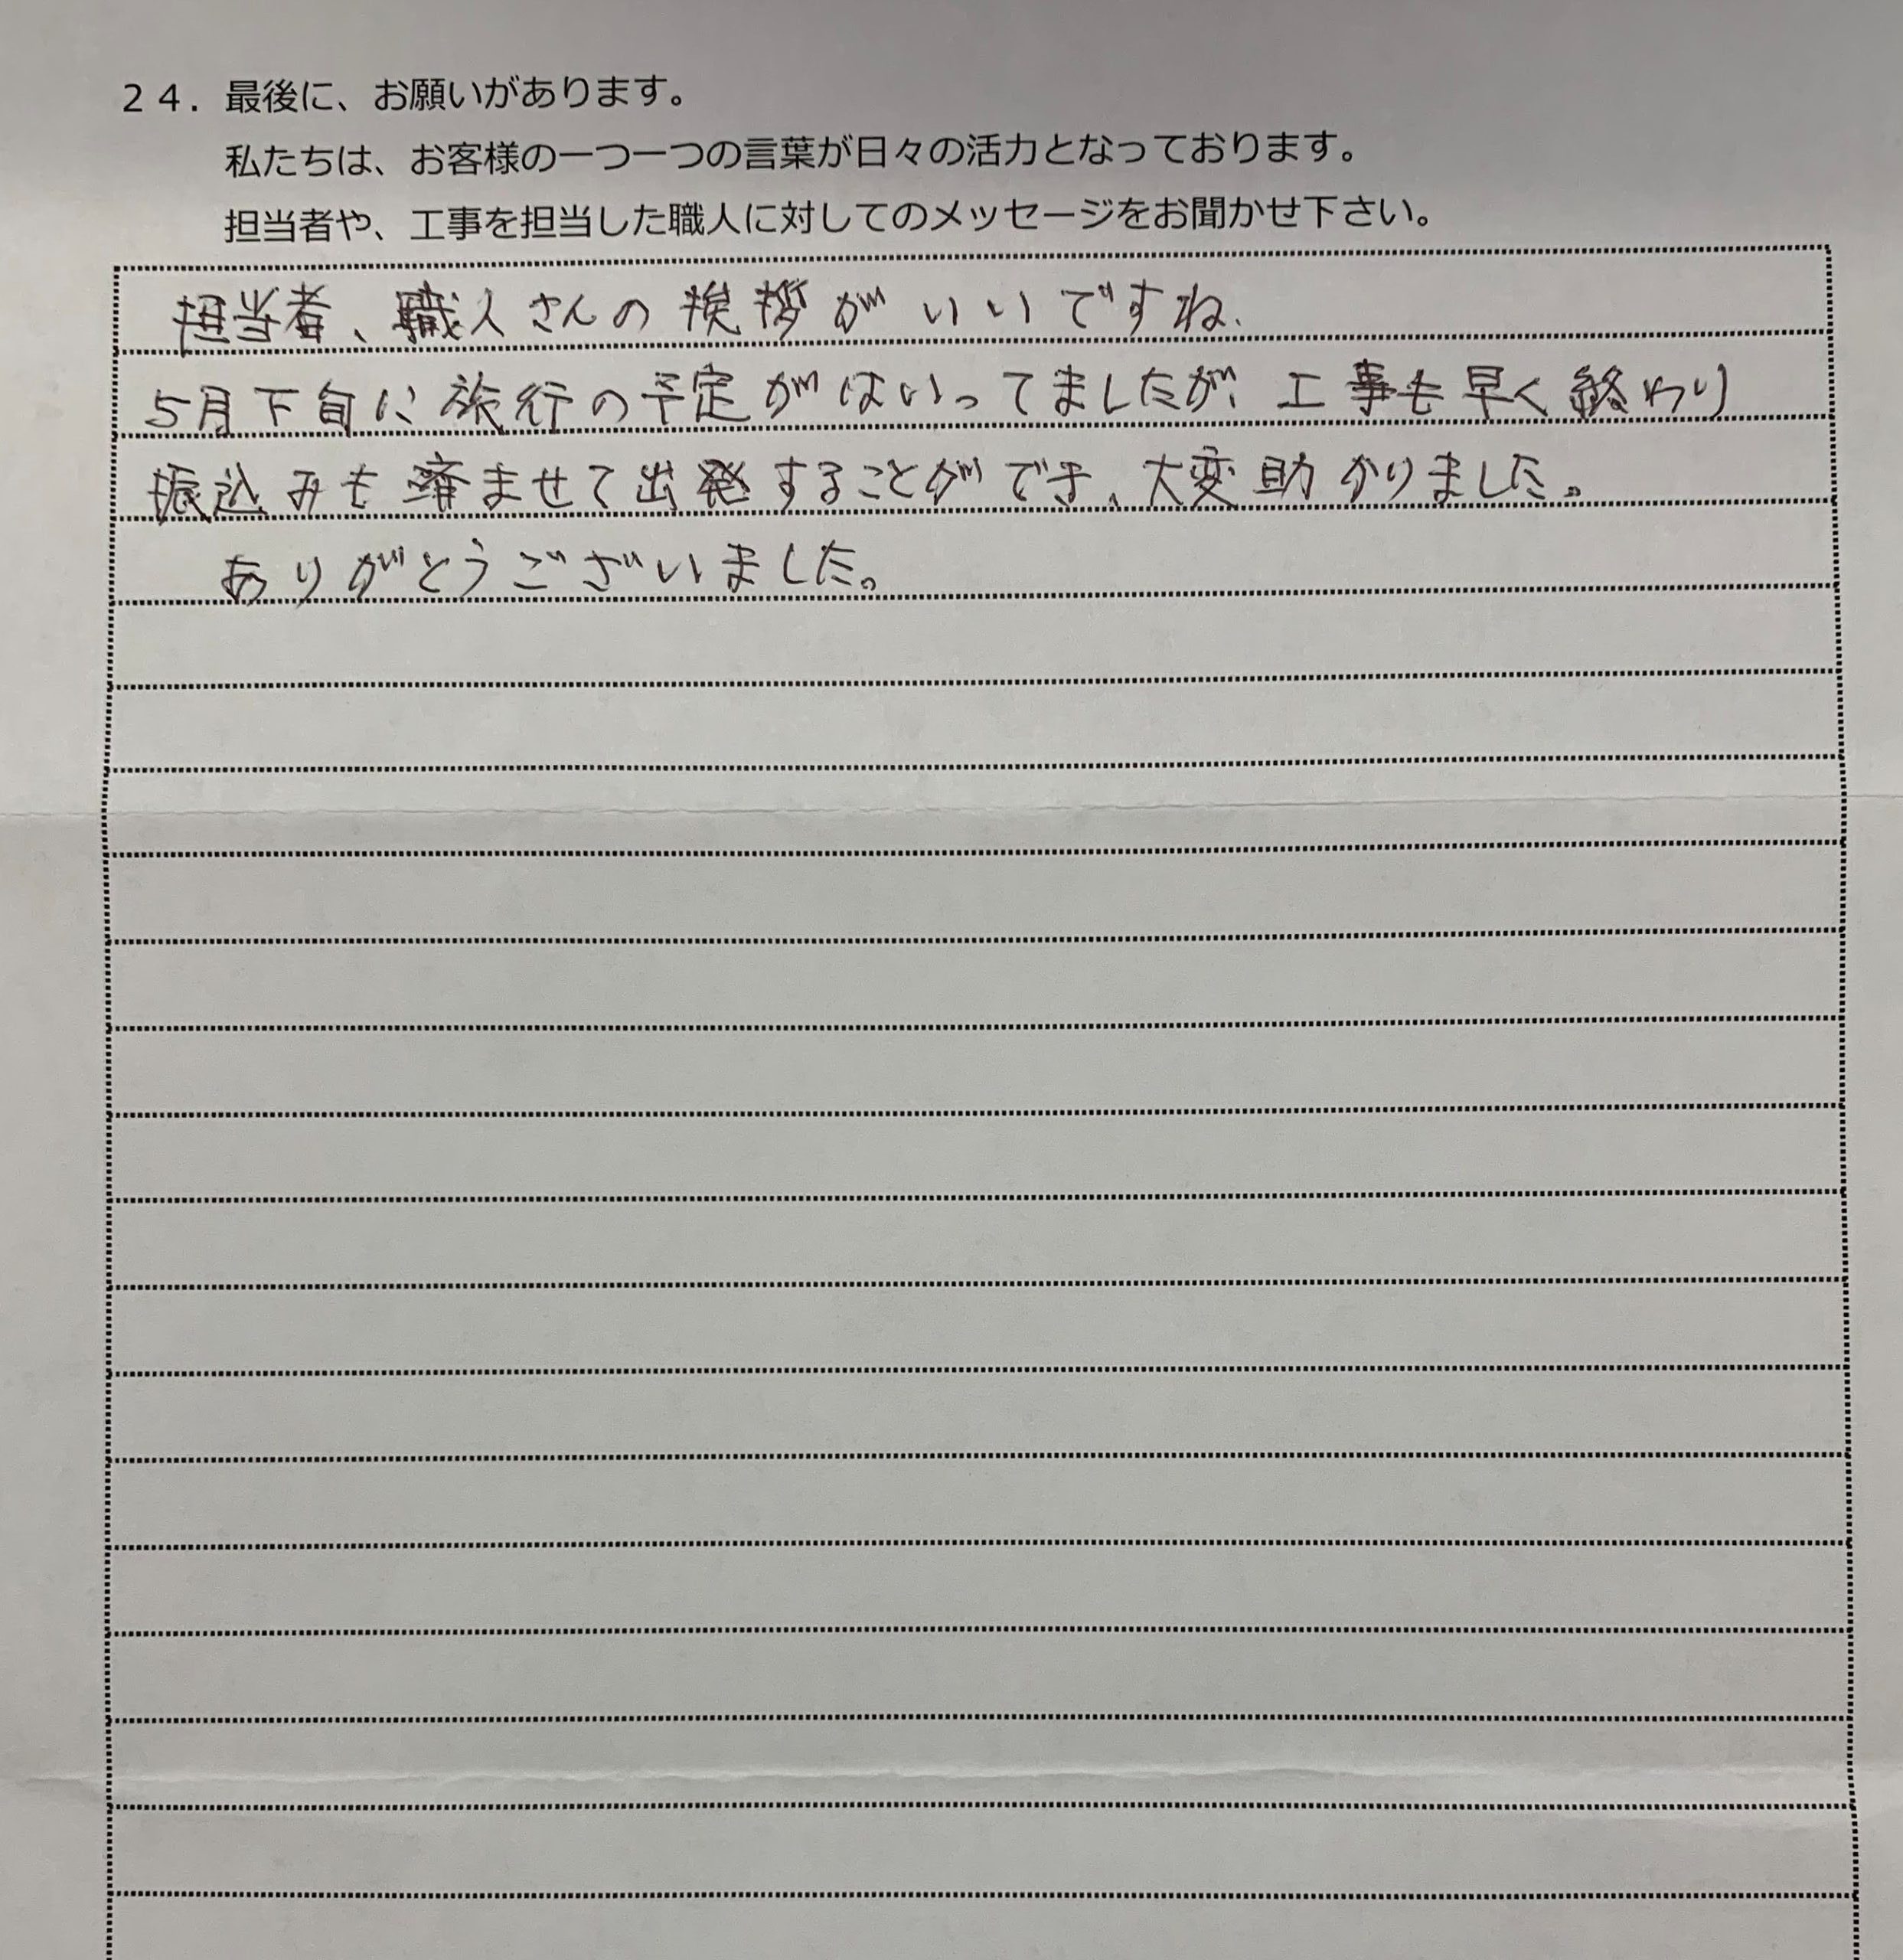 ２４．最後に、お願いがあります。
私たちは、お客様の一つ一つの言葉が日々の活力となっております。
担当者や、工事を担当した職人に対してのメッセージをお聞かせ下さい。
担当者、職人さんの挨拶がいいですね、
5月下旬に旅行の予定がはいってましたが、工事も早く終わり
振込みも済ませて出発することができ、大変助かりました。
ありがとうございました。